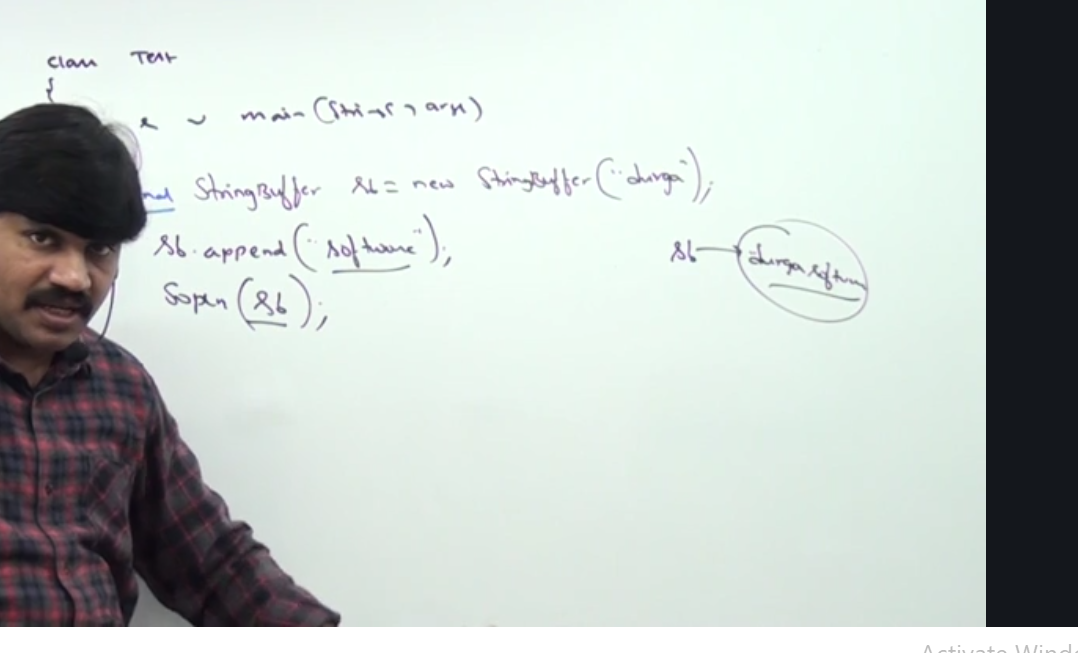 class Test
{
main(String[] args)
final StringBuffer sb = new StringBuffer("durga");
sb.append("software");
Sopln(sb);
sb → durgasoftware
Activate Wind